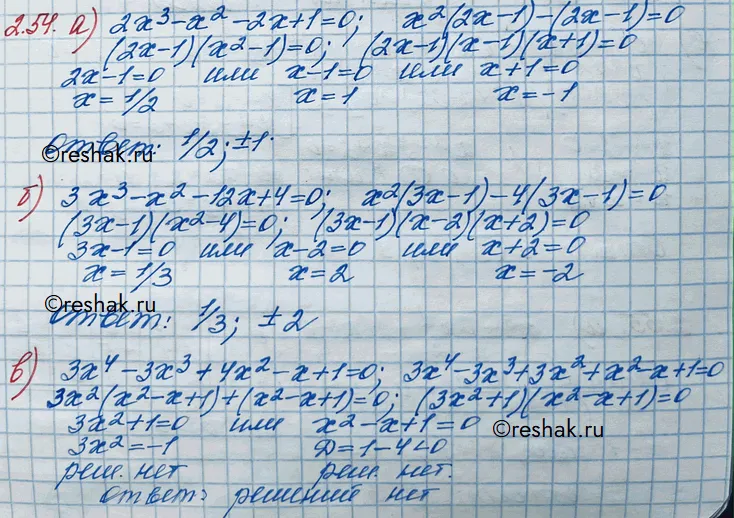 2.54. а) 2x³-x²-2x+1=0; x²(2x-1)-(2x-1)=0
(2x-1)(x²-1)=0; (2x-1)(x-1)(x+1)=0
2x-1=0 или x-1=0 или x+1=0
x=1/2 x=1 x=-1
Ответ: 1/2; ±1.
©reshak.ru
б) 3x³-x²-12x+4=0; x²(3x-1)-4(3x-1)=0
(3x-1)(x²-4)=0; (3x-1)(x-2)(x+2)=0
3x-1=0 или x-2=0 или x+2=0
x=1/3 x=2 x=-2
©reshak.ru
Ответ: 1/3; ±2
в) 3x⁴-3x³+4x²-x+1=0; 3x⁴-3x³+3x²+x²-x+1=0
3x²(x²-x+1)+(x²-x+1)=0; (3x²+1)(x²-x+1)=0
3x²+1=0 или x²-x+1=0
©reshak.ru
3x²=-1 D=1-4<0
реш. нет реш. нет.
ответ: решений нет